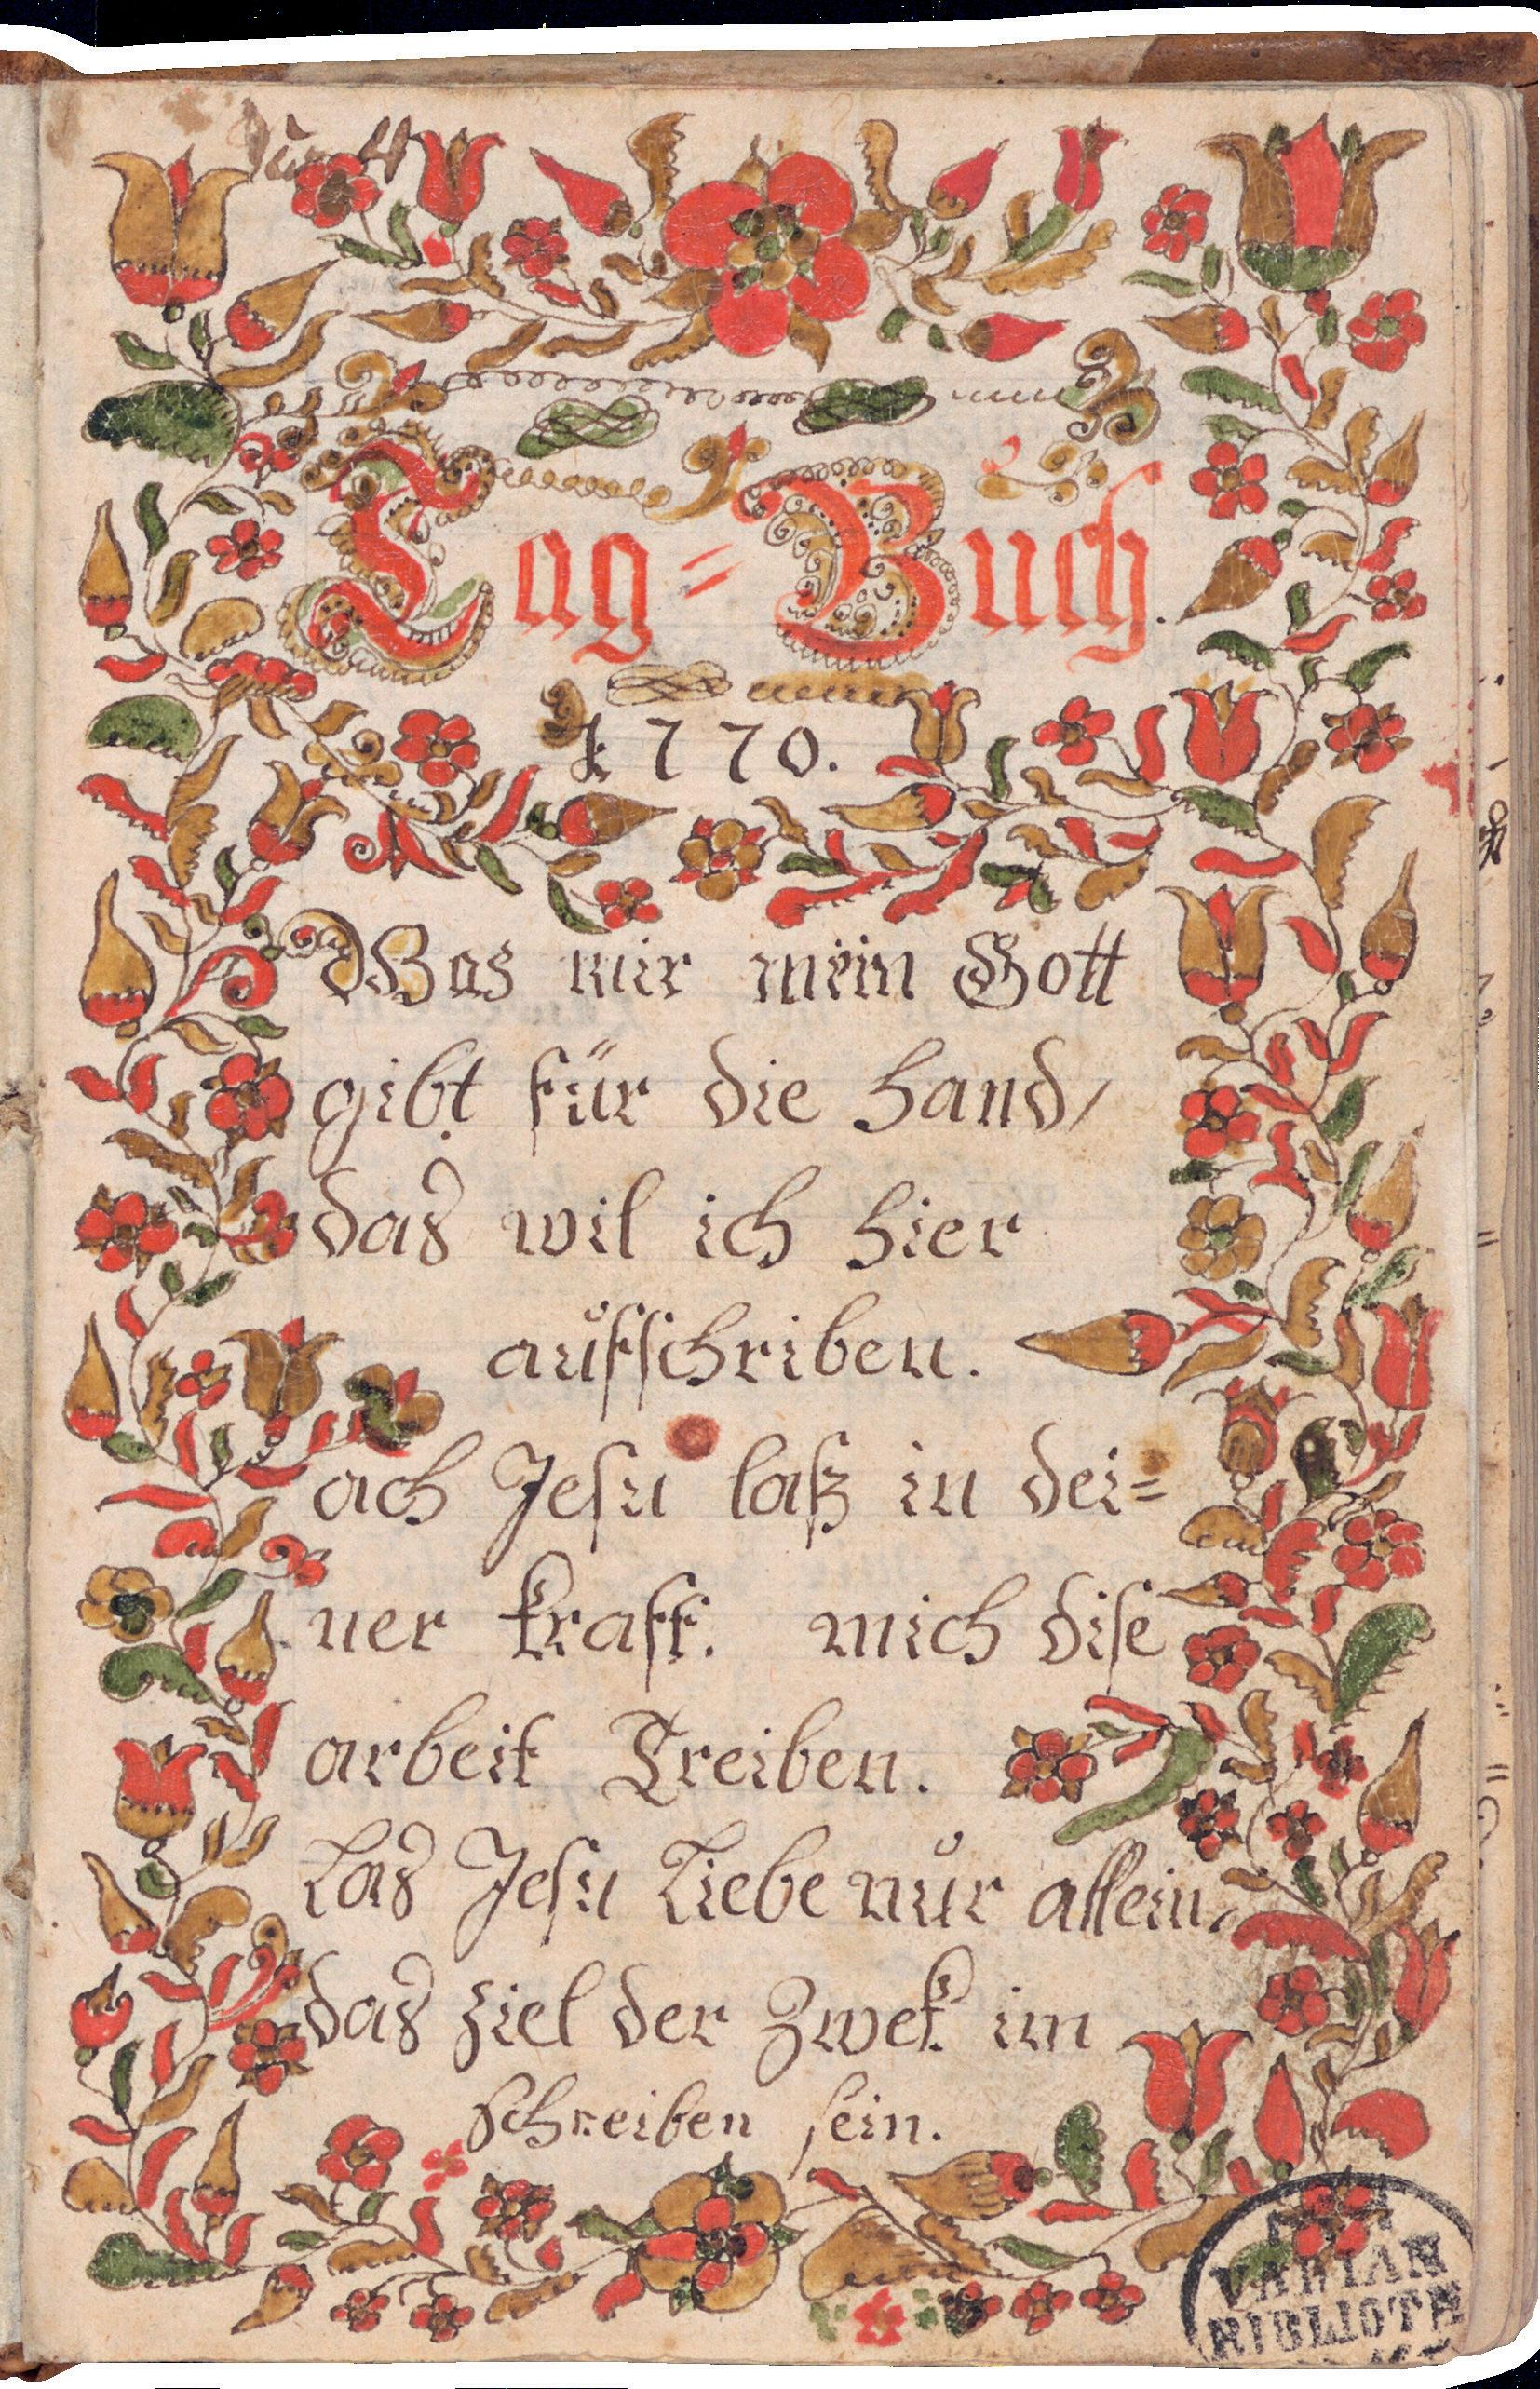 Tag=Buch.
1770.
Was mir mein Gott
gibt für die hand/
das wil ich hier
aůfschriben.
ach Jesu laß in dei=
ner kraft. mich dise
arbeit Treiben.
Las Jesu Liebe nůr allein,
das ziel der Zwek im
schreiben sein.
VADIAN
BIBLIOTH